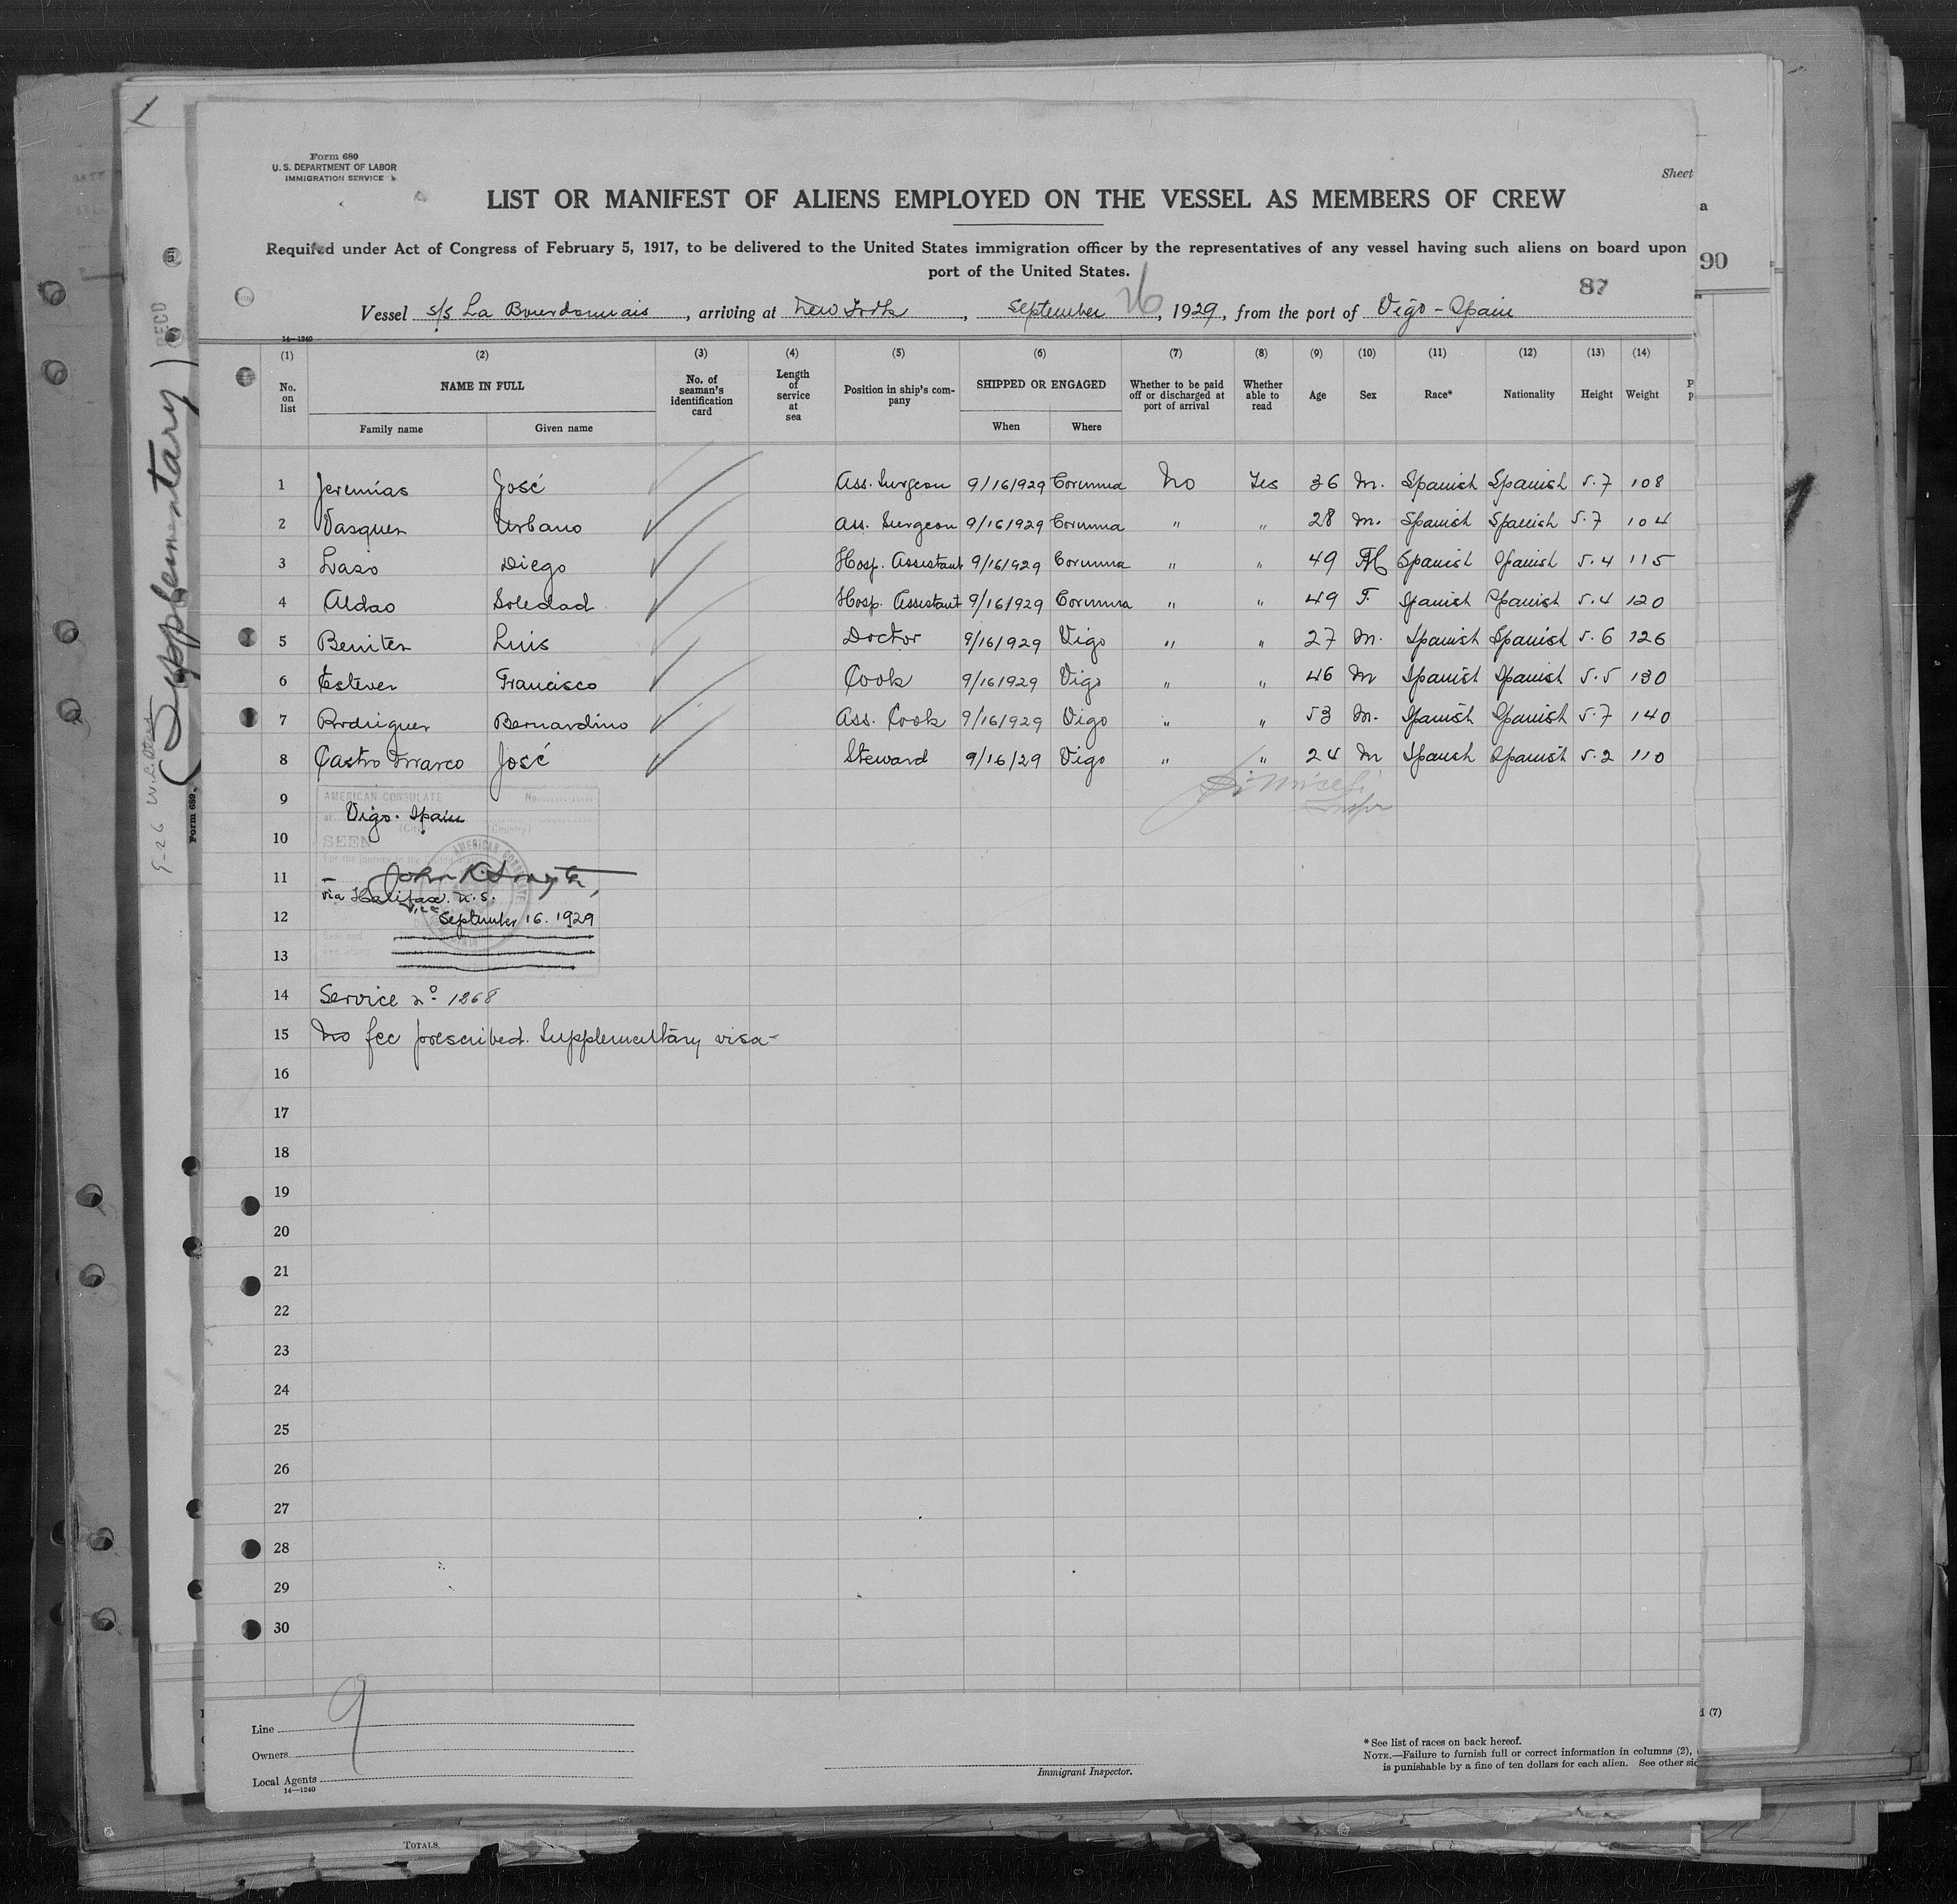 Form 680
U. S. DEPARTMENT OF LABOR
IMMIGRATION SERVICE
Sheet
LIST OR MANIFEST OF ALIENS EMPLOYED ON THE VESSEL AS MEMBERS OF CREW
Required under Act of Congress of February 5, 1917, to be delivered to the United States immigration officer by the representatives of any vessel having such aliens on board upon
port of the United States.
a
90
87
Vessel s/s La Bourdonnais, arriving at New York, September 26, 1929, from the port of Vigo - Spain
14—1240
(1) (2) (3) (4) (5) (6) (7) (8) (9) (10) (11) (12) (13) (14)
No. on list NAME IN FULL No. of seaman's identification card Length of service at sea Position in ship's company SHIPPED OR ENGAGED Whether to be paid off or discharged at port of arrival Whether able to read Age Sex Race* Nationality Height Weight
Family name Given name When Where
1 Jeremías José Ass. Surgeon 9/16/929 Corunna No Yes 36 M. Spanish Spanish 5.7 108
2 Vasquez Urbano Ass. Surgeon 9/16/929 Corunna " " 28 M. Spanish Spanish 5.7 104
3 Laso Diego Hosp. Assistant 9/16/929 Corunna " " 49 M Spanish Spanish 5.4 115
4 Aldao Soledad Hosp. Assistant 9/16/929 Corunna " " 49 F. Spanish Spanish 5.4 120
5 Benitez Luis Doctor 9/16/929 Vigo " " 27 M. Spanish Spanish 5.6 126
6 Estevez Francisco Cook 9/16/929 Vigo " " 46 M Spanish Spanish 5.5 130
7 Rodriguez Bernardino Ass. Cook 9/16/929 Vigo " " 53 M. Spanish Spanish 5.7 140
8 Castro Marco José Steward 9/16/29 Vigo " " 24 M Spanish Spanish 5.2 110
9
AMERICAN CONSULATE No.
at Vigo. Spain
(City) (Country)
10
SEEN
For the journey to the United States
AMERICAN CONSULATE
11
via Halifax. N.S.
12
September 16. 1929
13
14 Service nº 1268
15 No fee prescribed. Supplementary visa-
16
17
18
19
20
21
22
23
24
25
26
27
28
29
30
9
Line
Owners
Local Agents
14—1240
Immigrant Inspector.
* See list of races on back hereof.
NOTE.—Failure to furnish full or correct information in columns (2),
is punishable by a fine of ten dollars for each alien. See other
(7)
TOTALS
(Supplementary)
Form 689
RECD
9-26